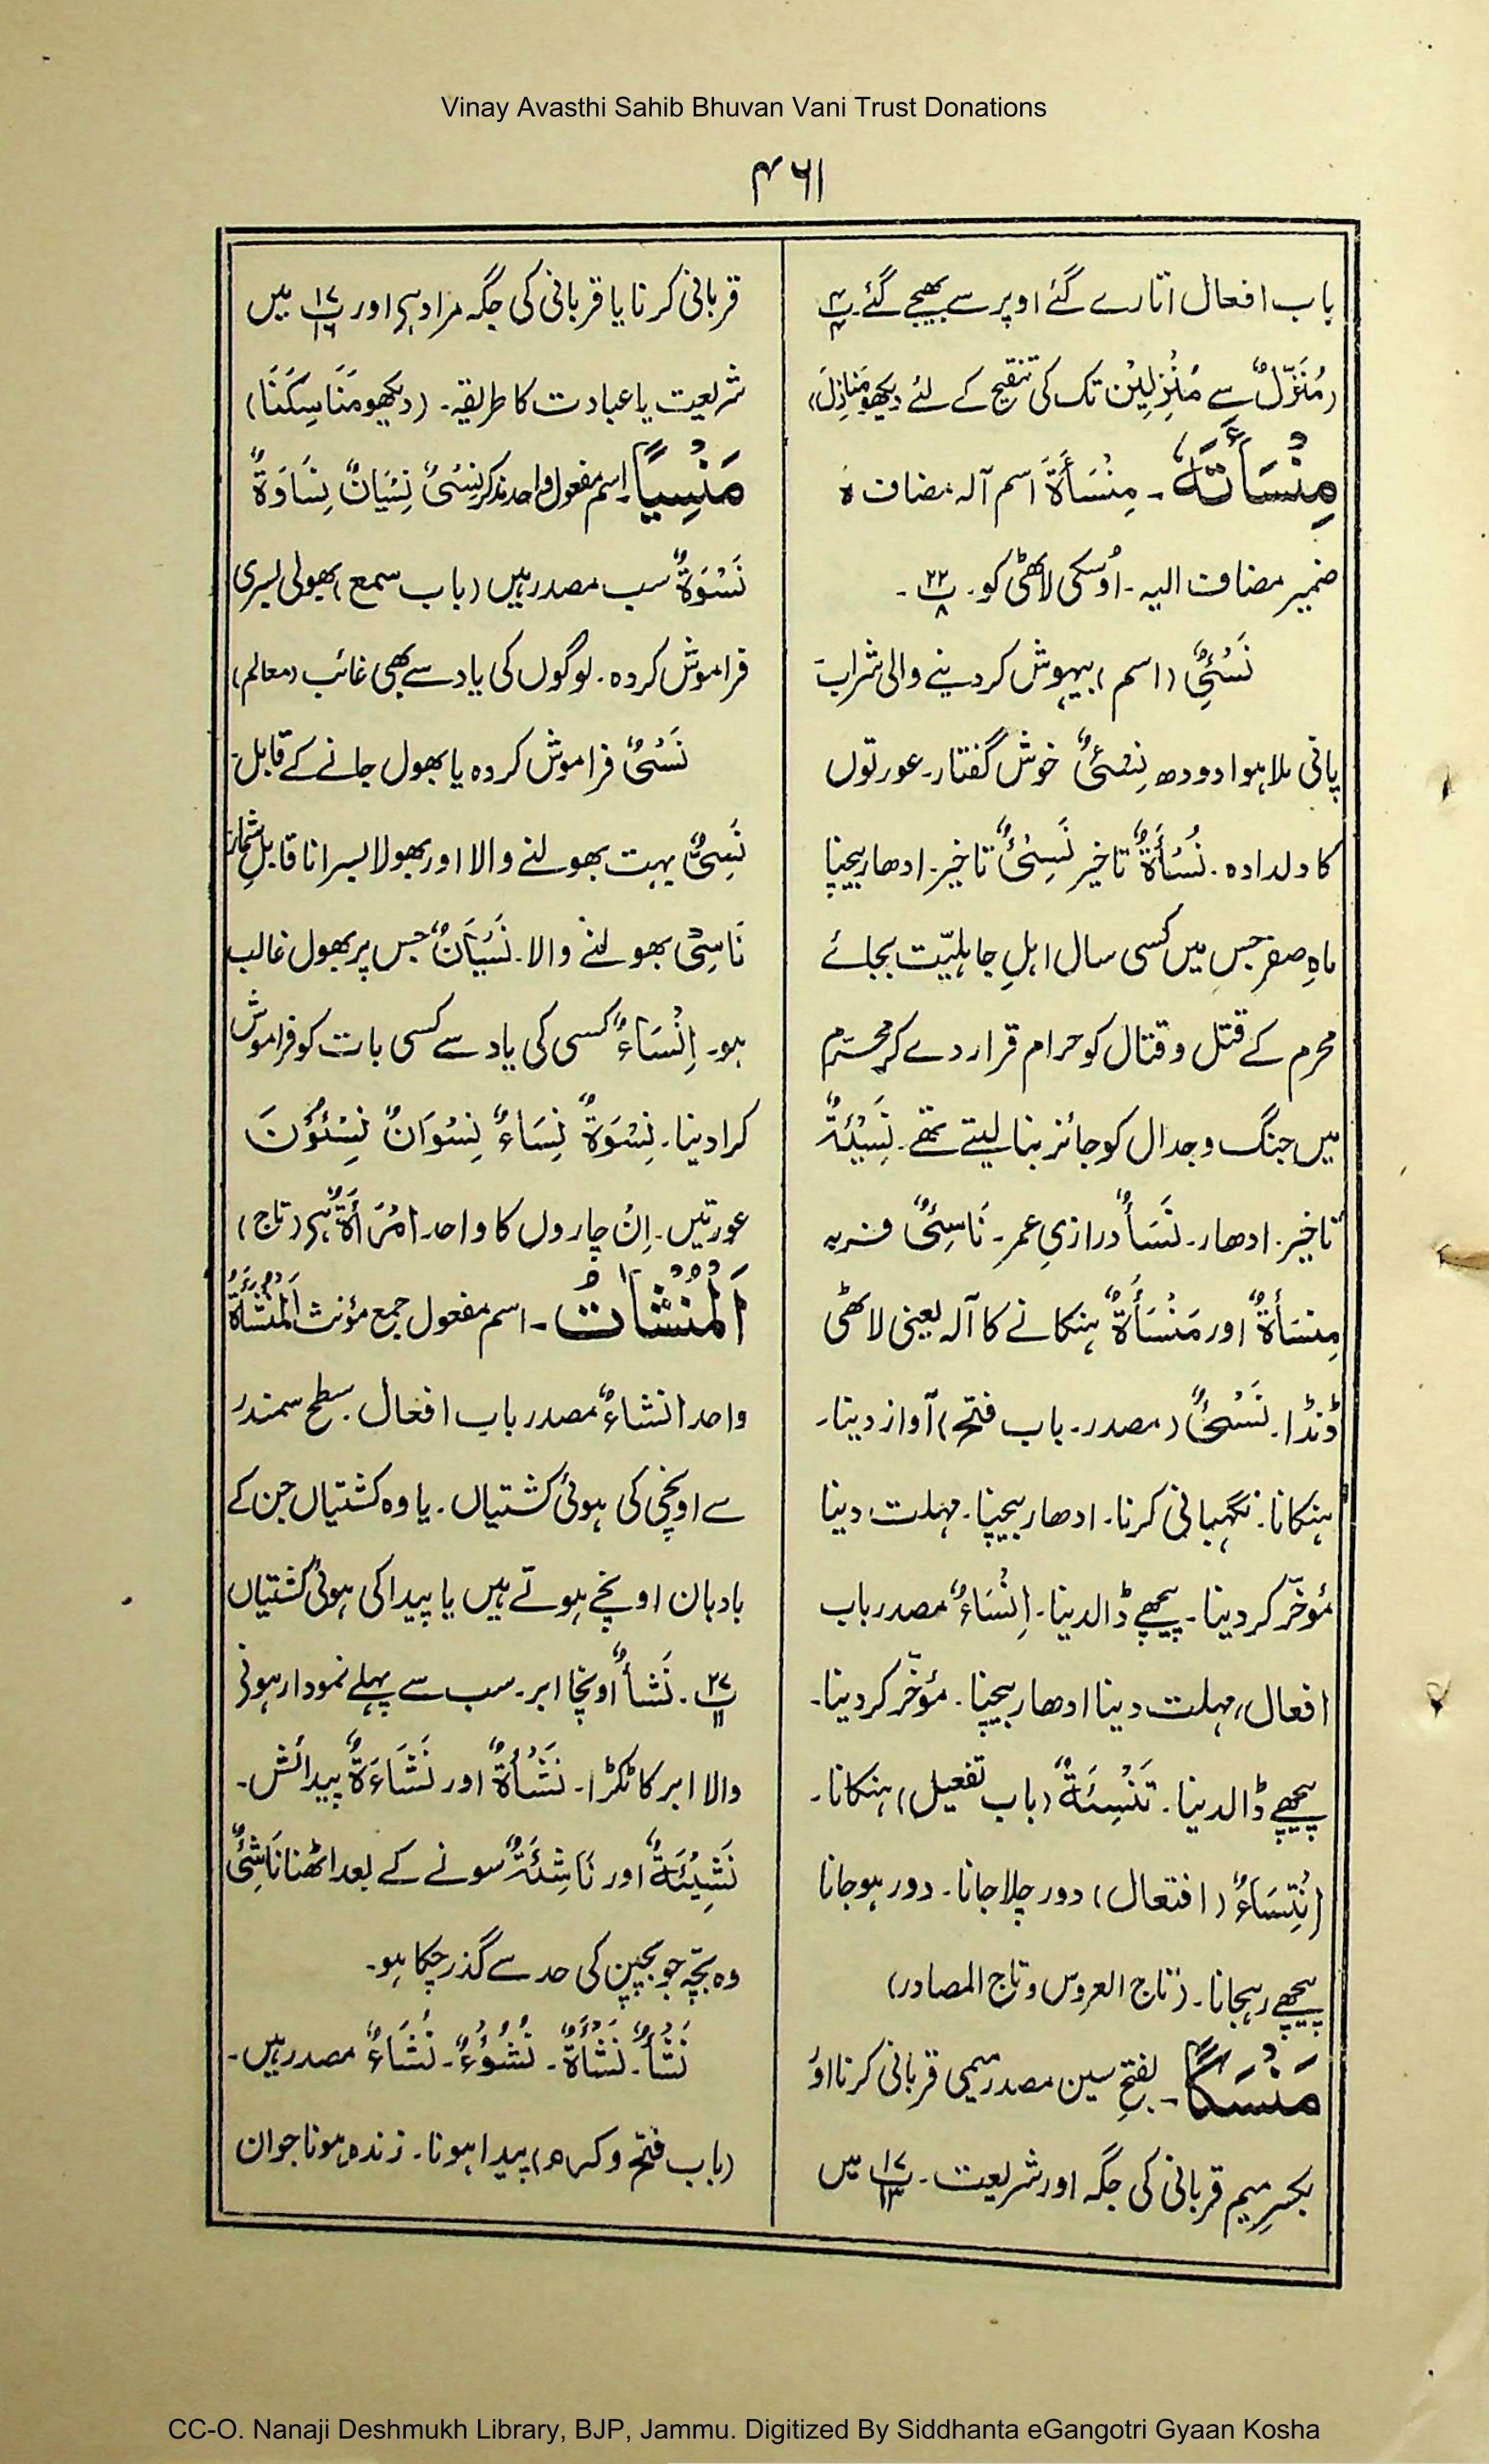 Vinay Avasthi Sahib Bhuvan Vani Trust Donations
۴۶۱
باب افعال اتارے گئے اوپر سے بھیجے گئے۔ پ ۴
(مُنَزَّلٌ سے مُنْزِلِیْن تک کی تنقیح کے لئے دیکھو مَنَازِلَ)
مِنْسَأَتَہٗ۔ مِنْسَأَۃَ اسم آلہ مضاف ہٗ
ضمیر مضاف الیہ۔ اُوسکی لاٹھی کو۔ پ ۲۲ ۸۔
نَسْیٌٔ (اسم) بیہوش کر دینے والی شراب۔
پانی ملا ہوا دودھ نِسْیٌٔ خوش گفتار۔ عورتوں
کا دلدادہ۔ نُسْأَۃٌ تاخیر نَسِیْیٌٔ تاخیر۔ ادھار بیچنا
ماہِ صفر جس میں کسی سال اہلِ جاہلیّت بجائے
محرم کے قتل و قتال کو حرام قرار دے کر محرّم
میں جنگ و جدال کو جائز بنا لیتے تھے۔ نَسِیْئَۃٌ
تاخیر۔ ادھار۔ نَسَأٌ درازیِ عمر۔ نَاسِیٌٔ فربہ
مِنسَأَۃٌ اور مَنْسَأَۃٌ ہنکانے کا آلہ یعنی لاٹھی
ڈنڈا۔ نَسْیٌٔ (مصدر۔ باب فتح) آواز دینا۔
ہنکانا۔ نگہبانی کرنا۔ ادھار بیچنا۔ مہلت دینا
مُؤخّر کر دینا۔ پیچھے ڈالدینا۔ اِنْسَاءٌ مصدر باب
افعال، مہلت دینا ادھار بیچنا۔ مؤخّر کر دینا۔
پیچھے ڈالدینا۔ تَنْسِئَۃٌ (باب تفعیل) ہنکانا۔
اِنْتِسَاءٌ (افتعال) دور چلا جانا۔ دور ہو جانا
پیچھے رہجانا۔ (تاج العروس و تاج المصادر)
مَنْسَکًا۔ بفتحِ سین مصدر میمی قربانی کرنا اوُ
بکسرِ میم قربانی کی جگہ اور شریعت۔ پ ۱۷ ۱۳ میں
قربانی کرنا یا قربانی کی جگہ مراد ہے اور پ ۱۷ ۱۶ میں
شریعت یا عبادت کا طریقہ۔ (دیکھو مَنَاسِکَنَا)
مَنْسِیًّا۔ اسم مفعول واحد مذکر نِسْیٌ نِسْیَانٌ نِسَاوَۃٌ
نَسْوَۃٌ سب مصدر ہیں (باب سمع) بھولی بسری
فراموش کردہ۔ لوگوں کی یاد سے بھی غائب (معالم)
نَسْیٌ فراموش کردہ یا بھول جانے کے قابل۔
نَسِیٌّ بہت بھولنے والا اور بھولا بسرا ناقابلِ شمار۔
نَاسِیْ بھولنے والا۔ نَسْیَانٌ جس پر بھول غالب
ہو۔ اِنْسَاءٌ کسی کی یاد سے کسی بات کو فراموش
کرا دینا۔ نِسْوَۃٌ نِسَاءٌ نِسْوَانٌ نِسْئُوْنَ
عورتیں۔ اِن چاروں کا واحد اِمْرَأَۃٌ ہے (تاج)
اَلْمُنْشَاٰتُ۔ اسم مفعول جمع مؤنث اَلْمُنْشَأَۃُ
واحد انشاءٌ مصدر باب افعال۔ سطح سمندر
سے اونچی کی ہوئی کشتیاں۔ یا وہ کشتیاں جن کے
بادبان اونچے ہوتے ہیں یا پیدا کی ہوئی کشتیاں
پ ۲۷ ۱۱۔ نَشأٌ اونچا ابر۔ سب سے پہلے نمودار ہونے
والا ابر کا ٹکڑا۔ نَشْأَۃٌ اور نَشَاءَۃٌ پیدائش۔
نَشِیْئَۃٌ اور نَاشِئَۃٌ سونے کے بعد اٹھنا نَاشِیٌٔ
وہ بچّہ جو بچپن کی حد سے گذر چکا ہو۔
نَشْأٌ۔ نَشْأَۃٌ۔ نُشُوْءٌ۔ نُشَاءٌ مصدر ہیں۔
(باب فتح و کرم) پیدا ہونا۔ زندہ ہونا جوان
CC-O. Nanaji Deshmukh Library, BJP, Jammu. Digitized By Siddhanta eGangotri Gyaan Kosha